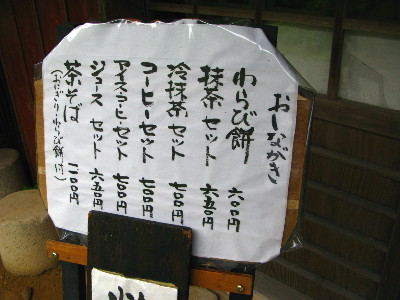 おしながき
わらび餅 六〇〇円
抹茶セット 六五〇円
冷抹茶セット 七〇〇円
コーヒーセット 七〇〇円
アイスコーヒーセット 七〇〇円
ジュースセット 六五〇円
茶そば 一一〇〇円
(おにぎり・わらび餅付)